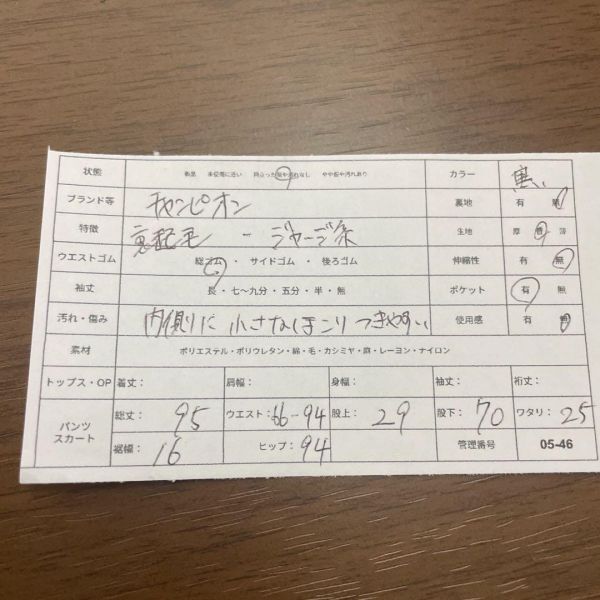 状態 新品 未使用に近い 目立った傷や汚れなし やや傷や汚れあり カラー 黒
ブランド等 キャンピオン 裏地 有 無
特徴 裏起毛 ー ジャージ系 生地 厚 普 薄
ウエストゴム 総ゴム・サイドゴム・後ろゴム 伸縮性 有 無
袖丈 長・七〜九分・五分・半・無 ポケット 有 無
汚れ・傷み 内側に小さなほこりつきやすい 使用感 有 無
素材 ポリエステル・ポリウレタン・綿・毛・カシミヤ・麻・レーヨン・ナイロン
トップス・OP 着丈: 肩幅: 身幅: 袖丈: 裄丈:
パンツ スカート 総丈: 95 ウエスト: 66-94 股上: 29 股下: 70 ワタリ: 25
裾幅: 16 ヒップ: 94 管理番号 05-46